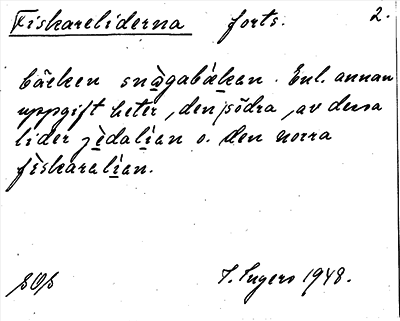 Fiskareliderna forts. 2.
bäcken snø̀gabækan. Enl. annan
uppgift heter, den södra, av dessa
lider jèdalían o. den norra
fìskaralían.
SOS J. Ingers 1948.